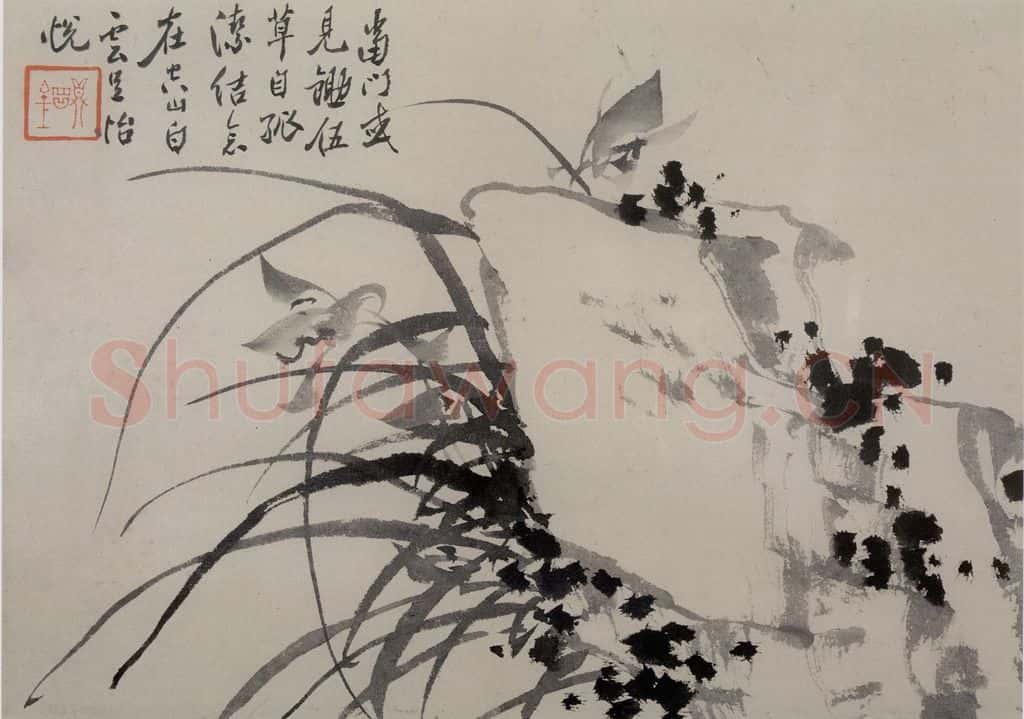 當門或
見鋤伍
草自孤
潔結念
在空山白
雲足怡
悅
Shufawang.CN